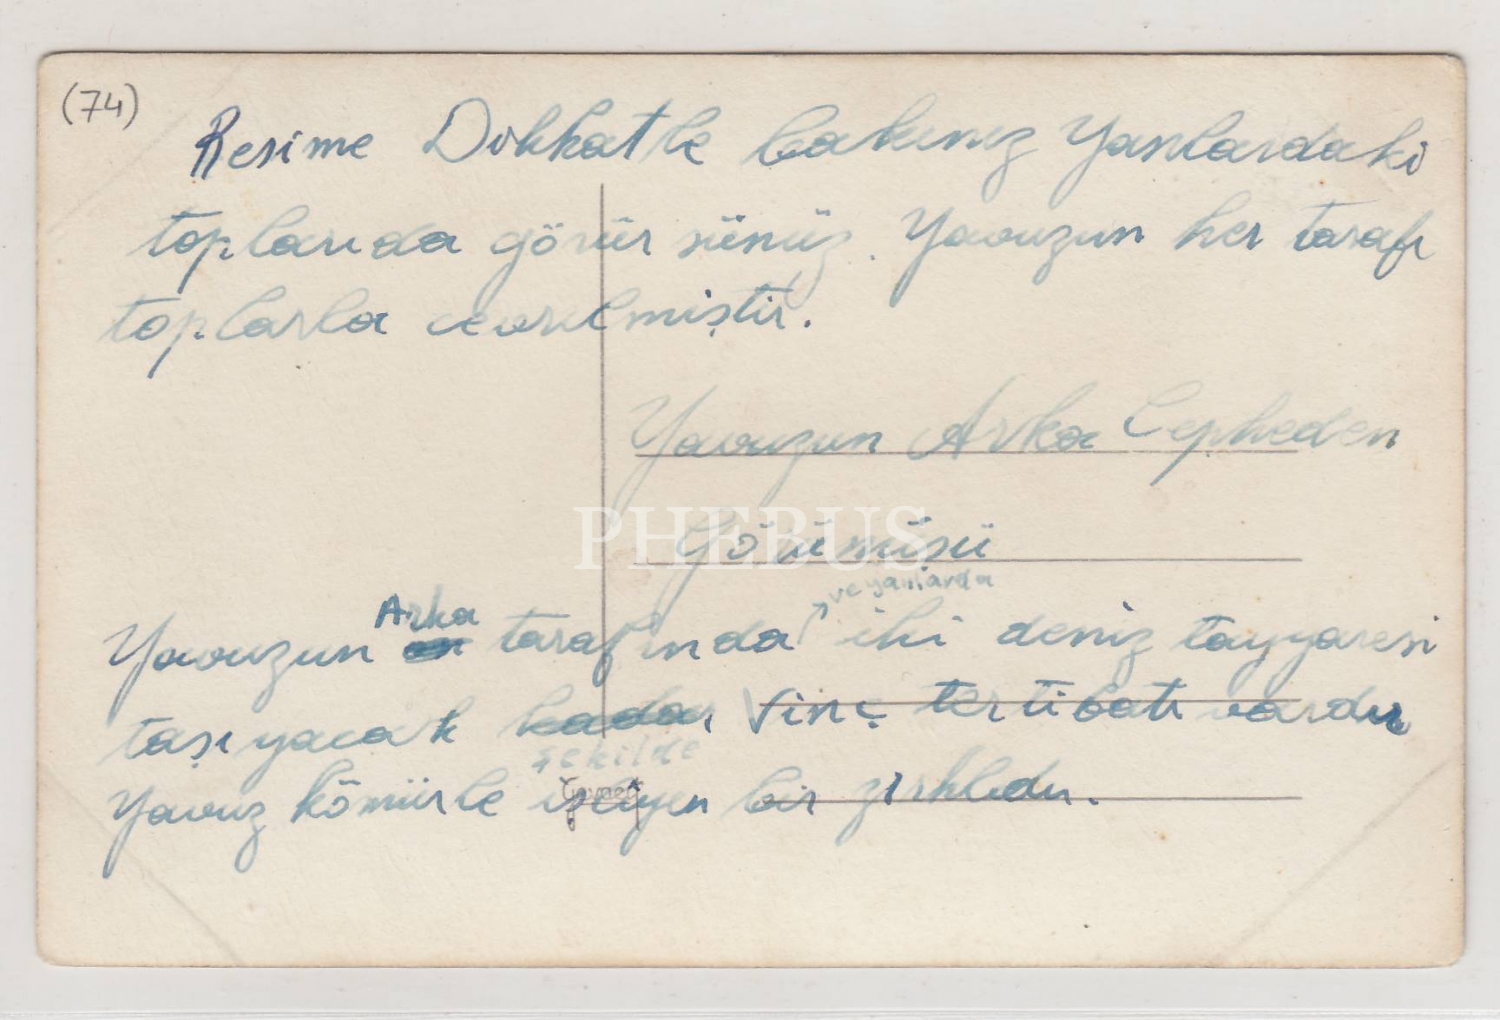 (74)
Resime Dikkatle bakınız Yanlardaki
topları da görür sünüz. Yavuzun her tarafı
toplarla cevrilmiştir.
Yavuzun Arka Cepheden
PHEBUS
Görünüşü
ve yanlarda
Arka
Yavuzun tarafında iki deniz tayyaresi
taşıyacak kadar Vinç tertibatı vardır
şekilde
Yavuz kömürle işleyen bir zırhlıdır.